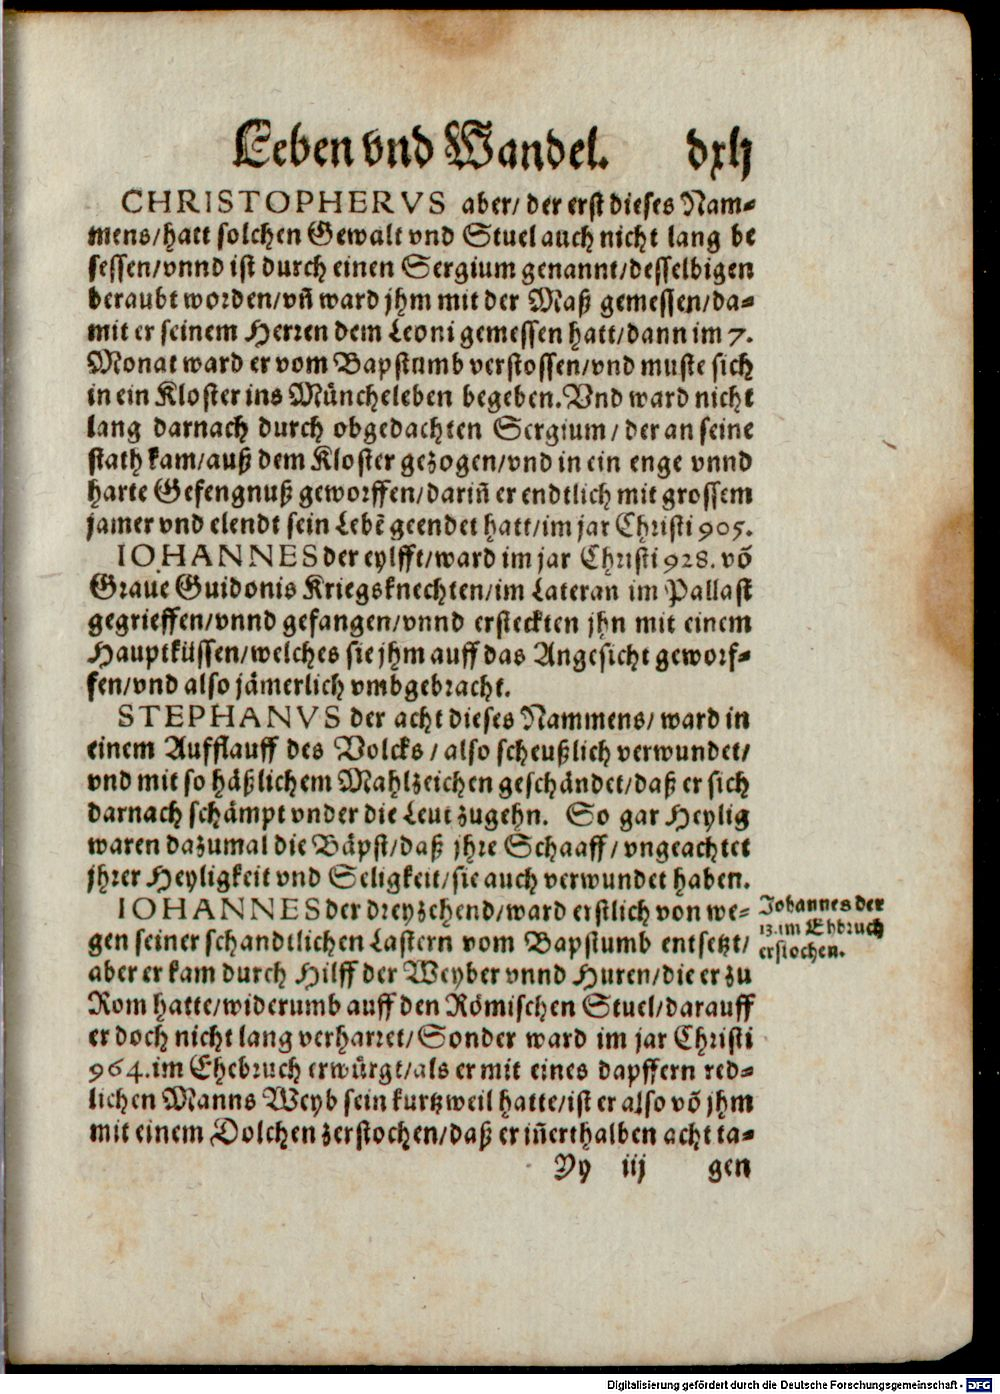 Leben vnd Wandel. dxlj
CHRISTOPHERVS aber/ der erst dieses Nam-
mens/hatt solchen Gewalt vnd Stuel auch nicht lang be
sessen/vnnd ist durch einen Sergium genannt/desselbigen
beraubt worden/vn̄ ward jhm mit der Maß gemessen/da-
mit er seinem Herren dem Leoni gemessen hatt/dann im 7.
Monat ward er vom Bapstumb verstossen/vnd muste sich
in ein Kloster ins Müncheleben begeben. Vnd ward nicht
lang darnach durch obgedachten Sergium/ der an seine
stath kam/auß dem Kloster gezogen/vnd in ein enge vnnd
harte Gefengnuß geworffen/darin̄ er endtlich mit grossem
jamer vnd elendt sein Lebē geendet hatt/im jar Christi 905.
IOHANNES der eylfft/ward im jar Christi 928. vō
Graue Guidonis Kriegsknechten/im Lateran im Pallast
gegrieffen/vnnd gefangen/vnnd ersteckten jhn mit einem
Hauptküssen/welches sie jhm auff das Angesicht geworf-
fen/vnd also jämerlich vmbgebracht.
STEPHANVS der acht dieses Nammens/ ward in
einem Aufflauff des Volcks/ also scheußlich verwundet/
vnd mit so häßlichem Mahlzeichen geschändet/daß er sich
darnach schämpt vnder die Leut zugehn. So gar Heylig
waren dazumal die Bäpst/daß jhre Schaaff/ vngeachtet
jhrer Heyligkeit vnd Seligkeit/sie auch verwundet haben.
IOHANNES der dreyzehend/ward erstlich von we-
gen seiner schandtlichen Lastern vom Bapstumb entsetzt/
aber er kam durch Hilff der Weyber vnnd Huren/die er zu
Rom hatte/widerumb auff den Römischen Stuel/darauff
er doch nicht lang verharret/Sonder ward im jar Christi
964.im Ehebruch erwürgt/als er mit eines dapffern red-
lichen Manns Weyb sein kurtzweil hatte/ist er also vō jhm
mit einem Dolchen zerstochen/daß er in̄erthalben acht ta-
Johannes der
13. im Ehbruch
erstochen.
Yy iij gen
Digitalisierung gefördert durch die Deutsche Forschungsgemeinschaft - DFG